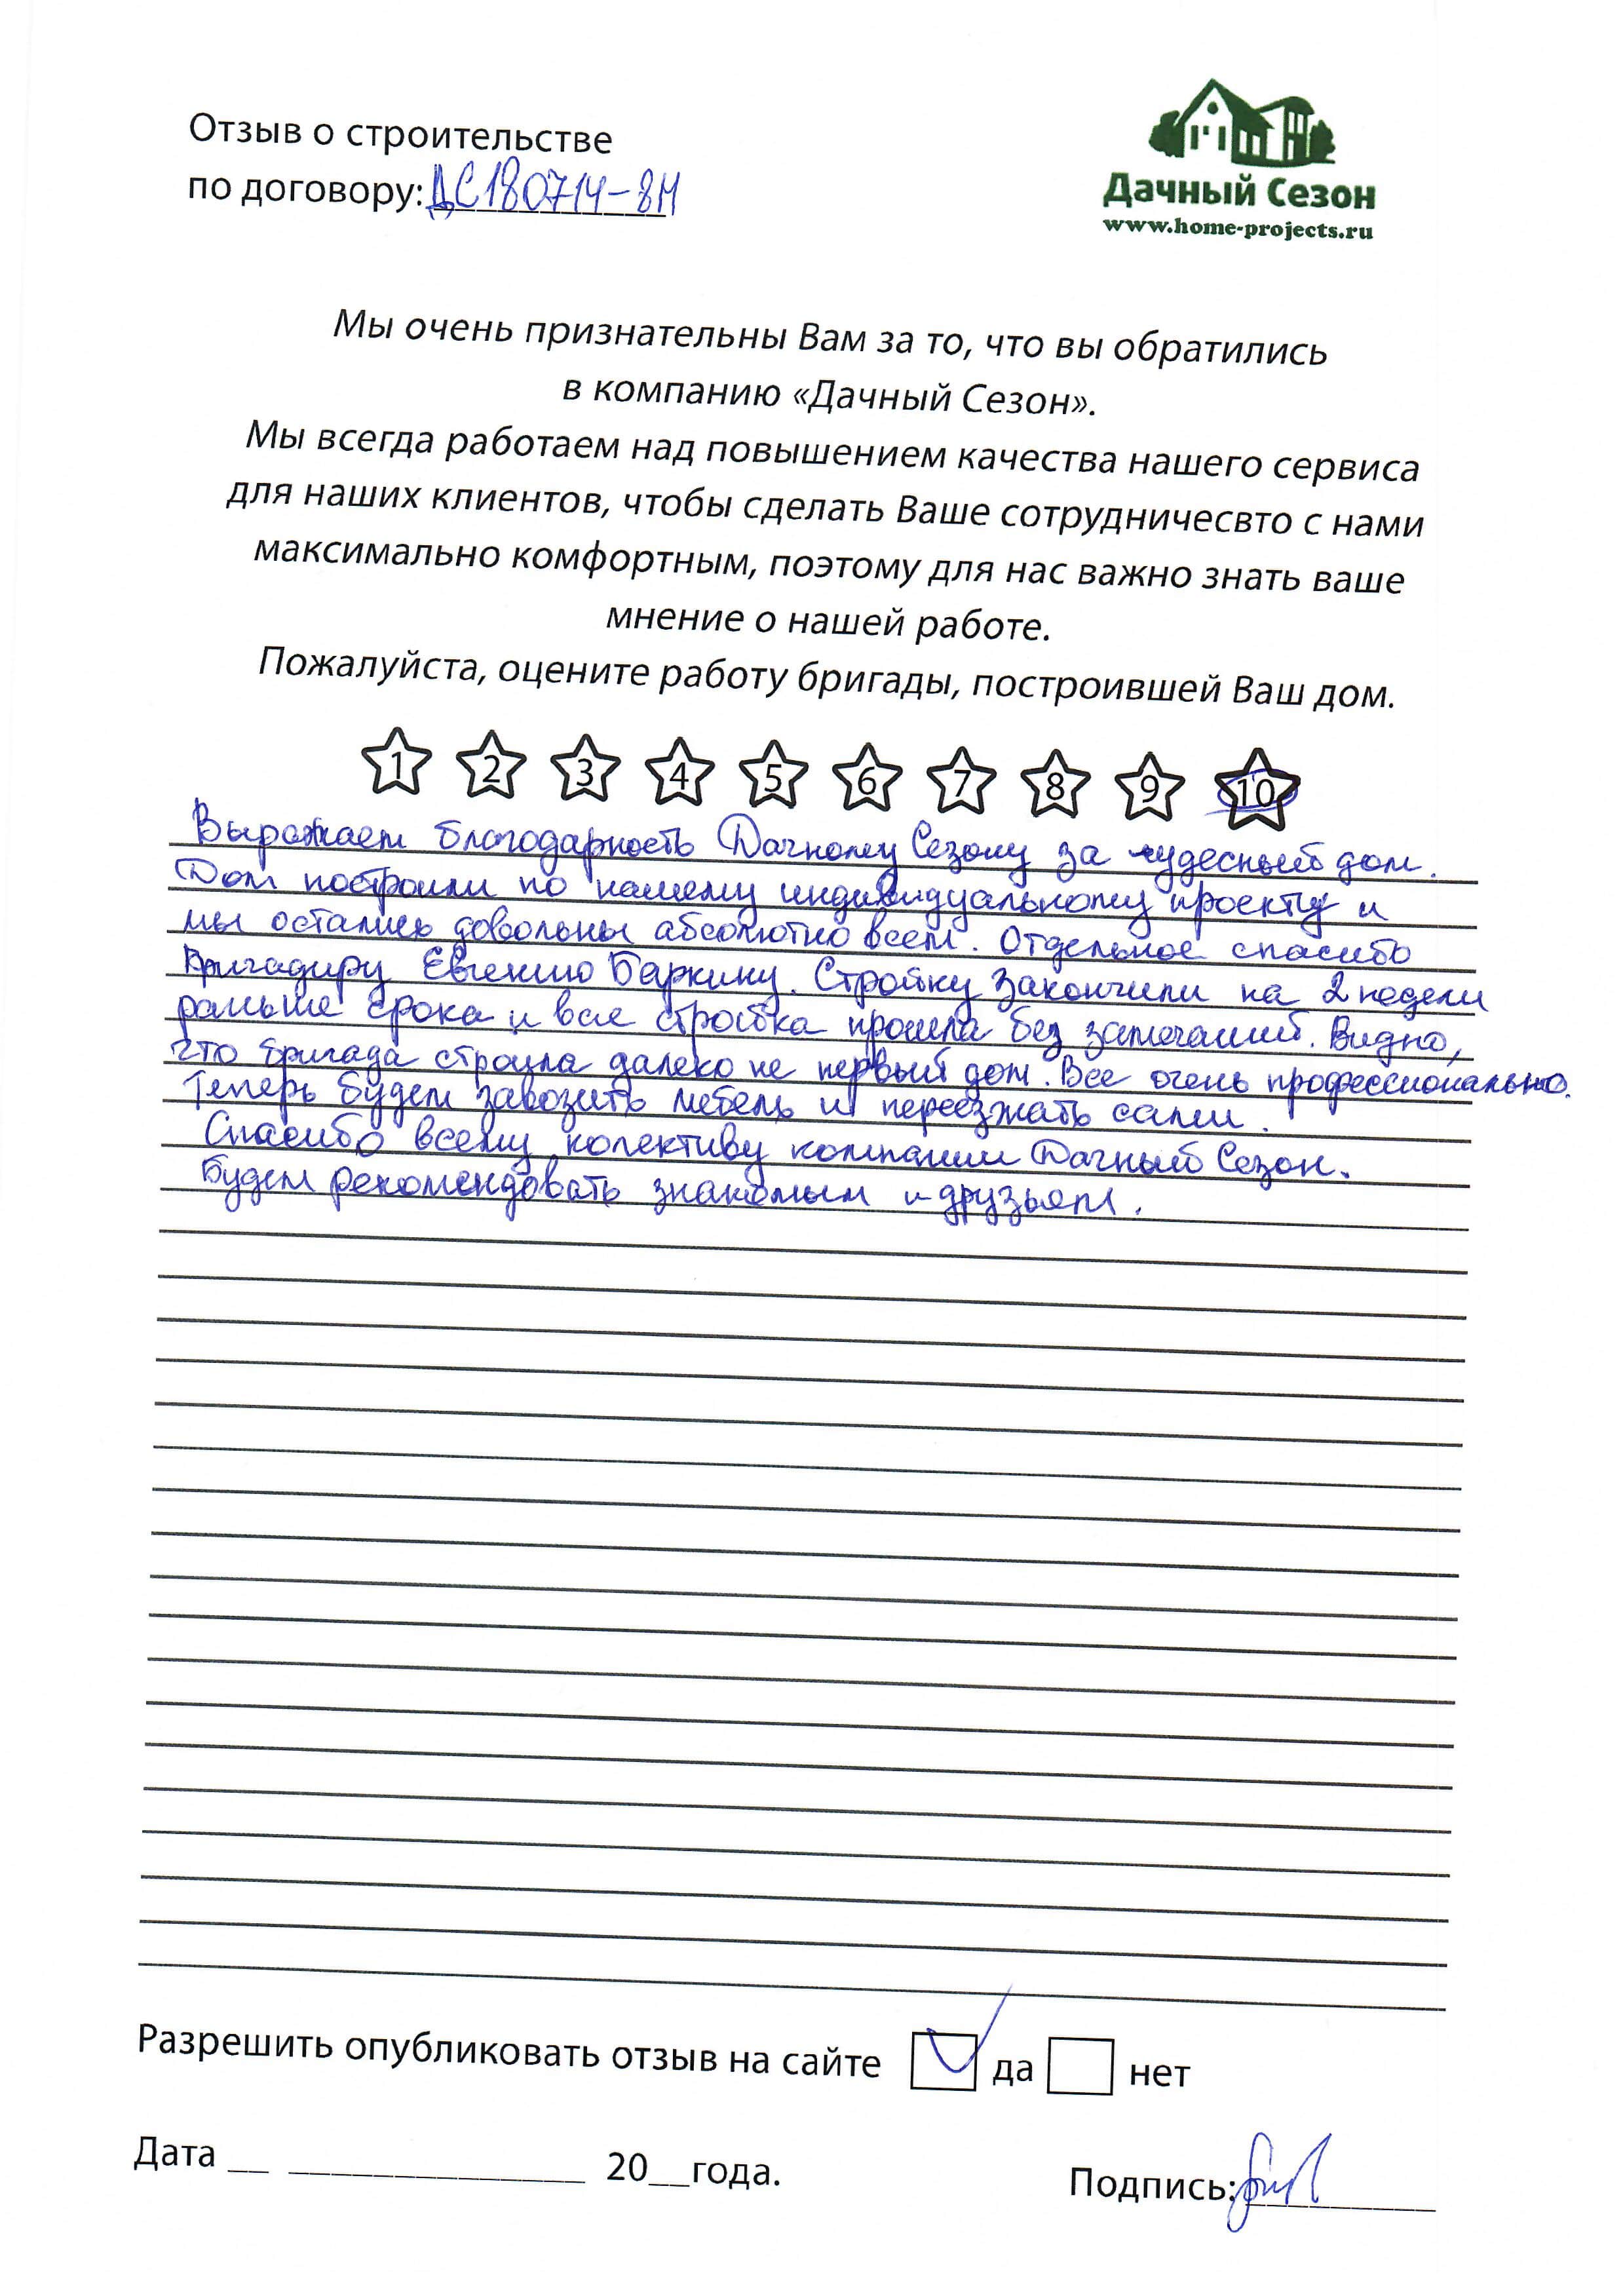 Отзыв о строительстве
по договору: ДС180714-8Н
Дачный Сезон
www.home-projects.ru
Мы очень признательны Вам за то, что вы обратились
в компанию «Дачный Сезон».
Мы всегда работаем над повышением качества нашего сервиса
для наших клиентов, чтобы сделать Ваше сотрудничесвто с нами
максимально комфортным, поэтому для нас важно знать ваше
мнение о нашей работе.
Пожалуйста, оцените работу бригады, построившей Ваш дом.
1 2 3 4 5 6 7 8 9 10
Выражаем благодарность Дачному Сезону за чудесный дом.
Дом построили по нашему индивидуальному проекту и
мы остались довольны абсолютно всем. Отдельное спасибо
бригадиру Евгению Баркину. Стройку закончили на 2 недели
раньше срока и вся стройка прошла без замечаний. Видно,
что бригада строила далеко не первый дом. Все очень профессионально.
Теперь будем завозить мебель и переезжать сами.
Спасибо всему колективу компании Дачный Сезон.
Будем рекомендовать знакомым и друзьям.
Разрешить опубликовать отзыв на сайте да нет
Дата __ ______________ 20__года.
Подпись: